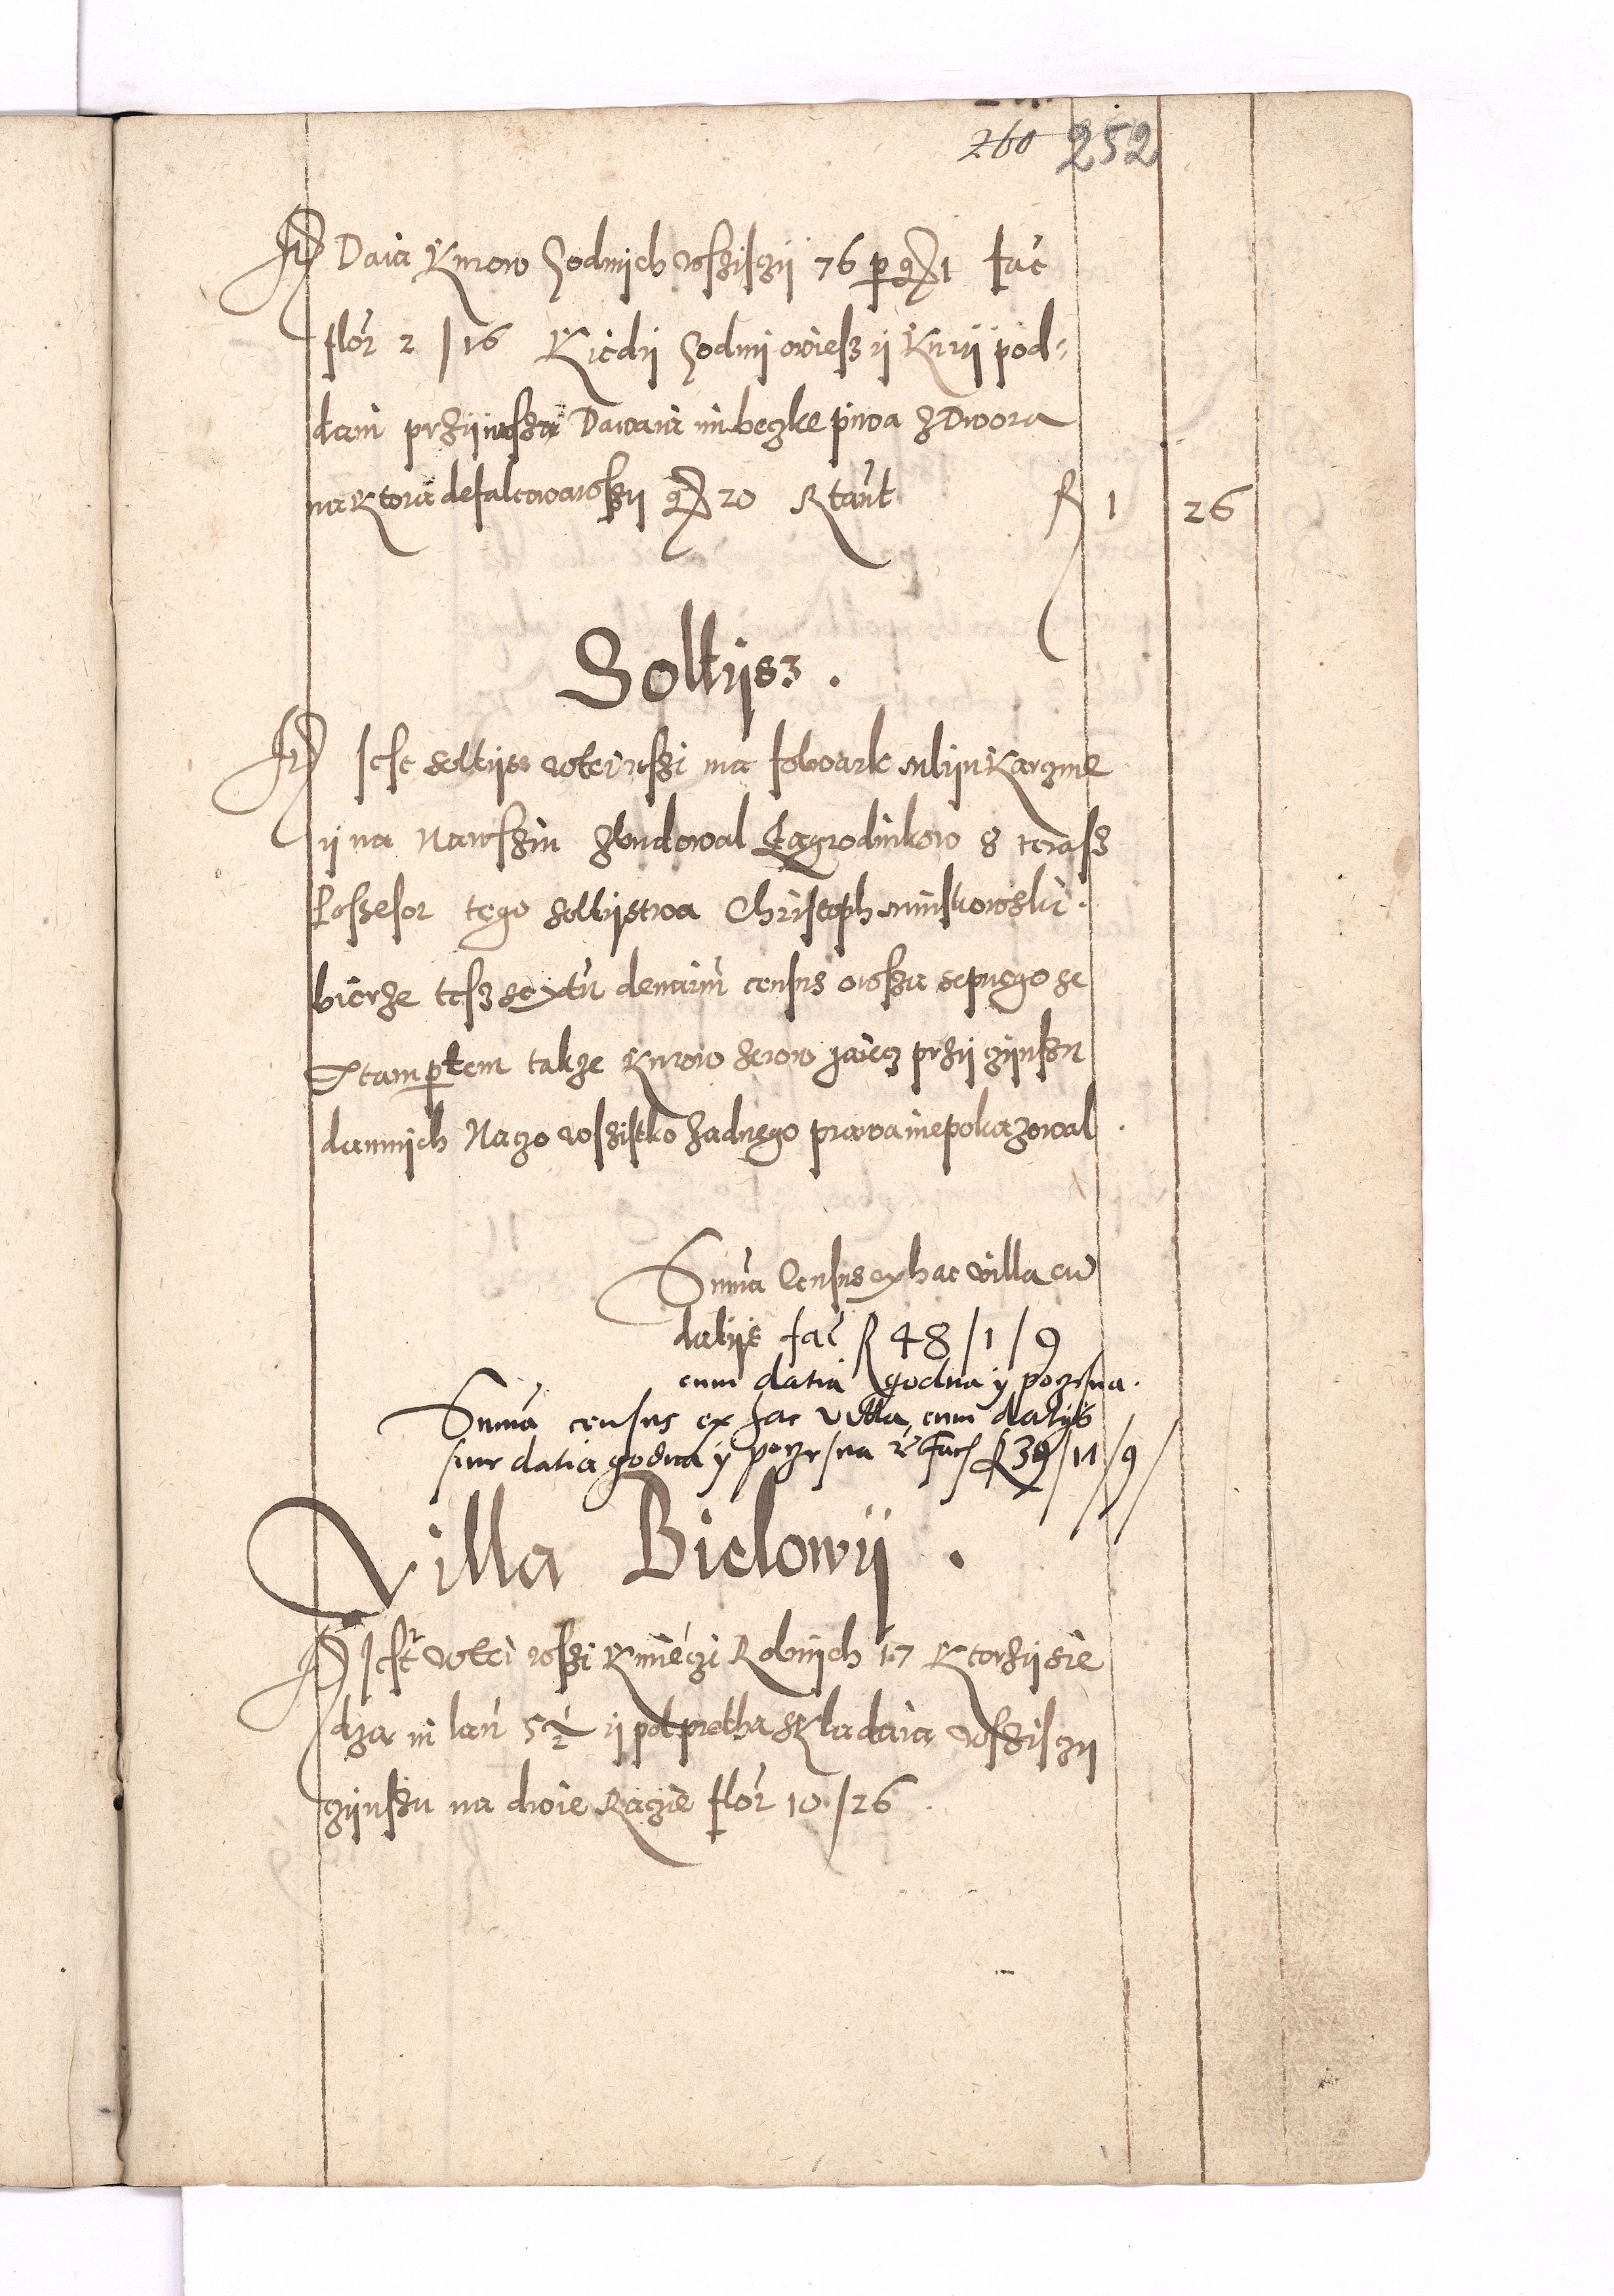 260 252
It Daia Kurow Godnich wszisczy 76 p gr 1 fac̃
flor̃ 2 / 16 Kiedy Godny owiesz y Kury pod-
dani przywoszą Dawaia im beczke piwa z Dwora
na Ktorą defalcowawszy gr 20 R tant̃
R 1 26
Soltysz .
It Jest soltyss wtei wszi ma folwark mlyn Karczme
y na Nawsziu zbudowal Zagrodnikow 8 terasz
Possesor tego soltystwa Christoph minskowski .
bierze tesz sextũ denariũ census owsza sepnego se
xtam partem takze Kurow serow jaiecz przy czynszu
dannich Naczo wszistko zadnego prawa niepokazowal .
Sum̃a Census ex hac villa cũ
datijs fac̃ R 48 / 1 / 9
cum datia godna y poczesna .
Sum̃a census ex hac villa cum datijs
sine datia godna y poczesna fac̃ R 39 / 11 / 9
Villa Bielowy .
It Jest wtei wszi Kmieczi Robnych 17 Ktorzy sie
dza in lań 5 1/2 y pol pretha skladaia wszisczy
czynszu na dwie Raczie flor̃ 10 / 26 .